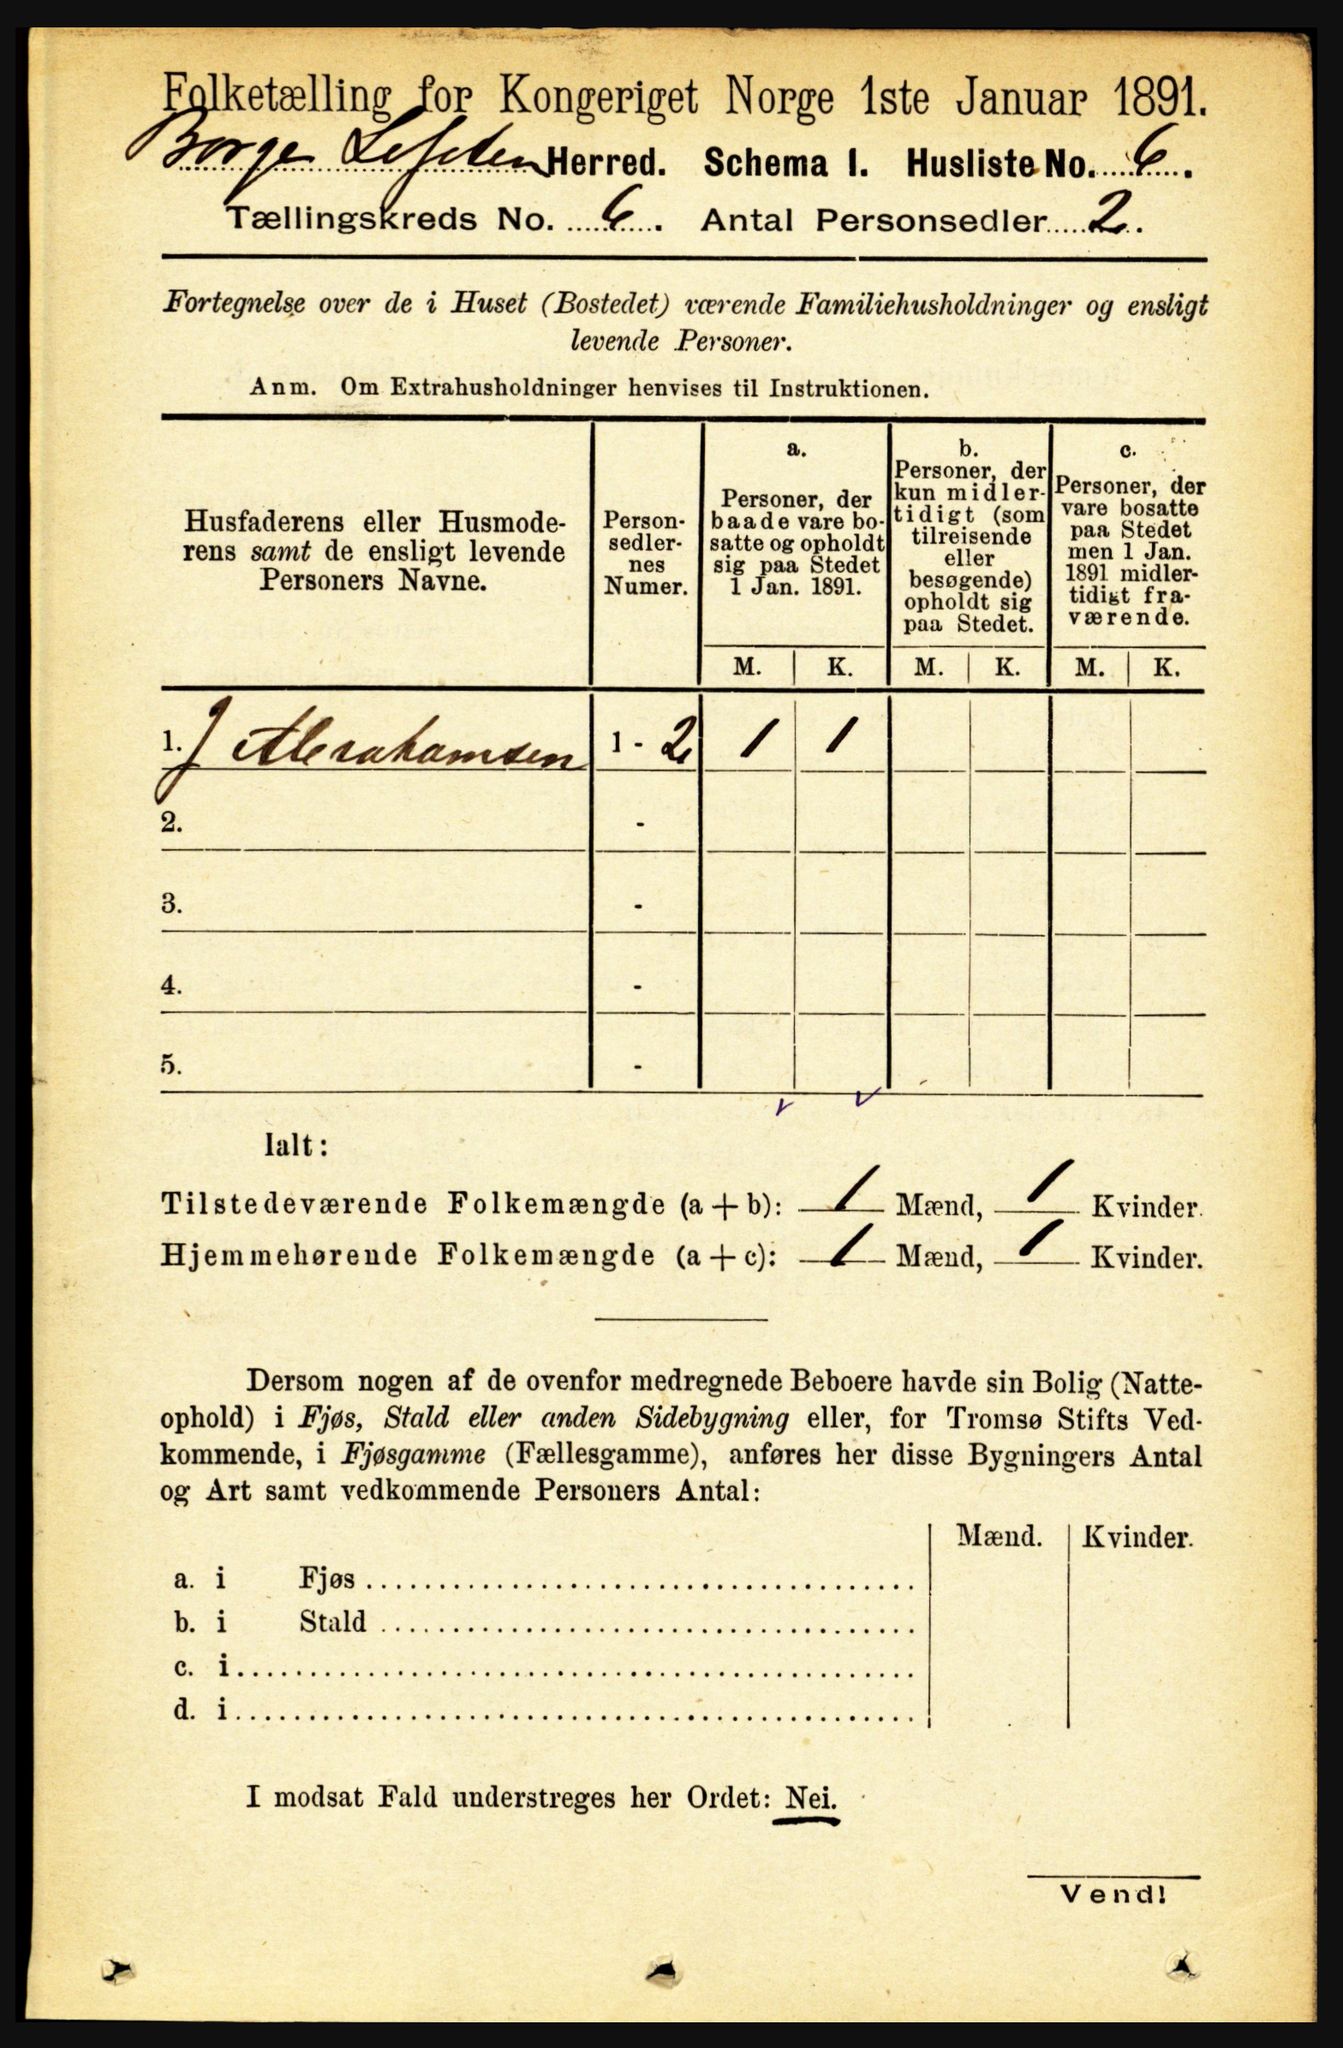 Folketælling for Kongeriget Norge 1ste Januar 1891.
Borge Lofoten Herred. Schema I. Husliste No. 6.
Tællingskreds No. 6. Antal Personsedler 2.
Fortegnelse over de i Huset (Bostedet) værende Familiehusholdninger og ensligt
levende Personer.
Anm. Om Extrahusholdninger henvises til Instruktionen.
Husfaderens eller Husmode-
rens samt de ensligt levende
Personers Navne.
Person-
sedler-
nes
Numer.
a.
Personer, der
baade vare bo-
satte og opholdt
sig paa Stedet
1 Jan. 1891.
b.
Personer, der
kun midler-
tidigt (som
tilreisende
eller
besøgende)
opholdt sig
paa Stedet.
c.
Personer, der
vare bosatte
paa Stedet
men 1 Jan.
1891 midler-
tidigt fra-
værende.
M. K. M. K. M. K.
1. J Abrahamsen 1 - 2 1 1
2. -
3. -
4. -
5. -
Ialt:
Tilstedeværende Folkemængde (a + b): 1 Mænd, 1 Kvinder.
Hjemmehørende Folkemængde (a + c): 1 Mænd, 1 Kvinder.
Dersom nogen af de ovenfor medregnede Beboere havde sin Bolig (Natte-
ophold) i Fjøs, Stald eller anden Sidebygning eller, for Tromsø Stifts Ved-
kommende, i Fjøsgamme (Fællesgamme), anføres her disse Bygningers Antal
og Art samt vedkommende Personers Antal:
Mænd. Kvinder.
a. i Fjøs
b. i Stald
c. i
d. i
I modsat Fald understreges her Ordet: Nei.
Vend!